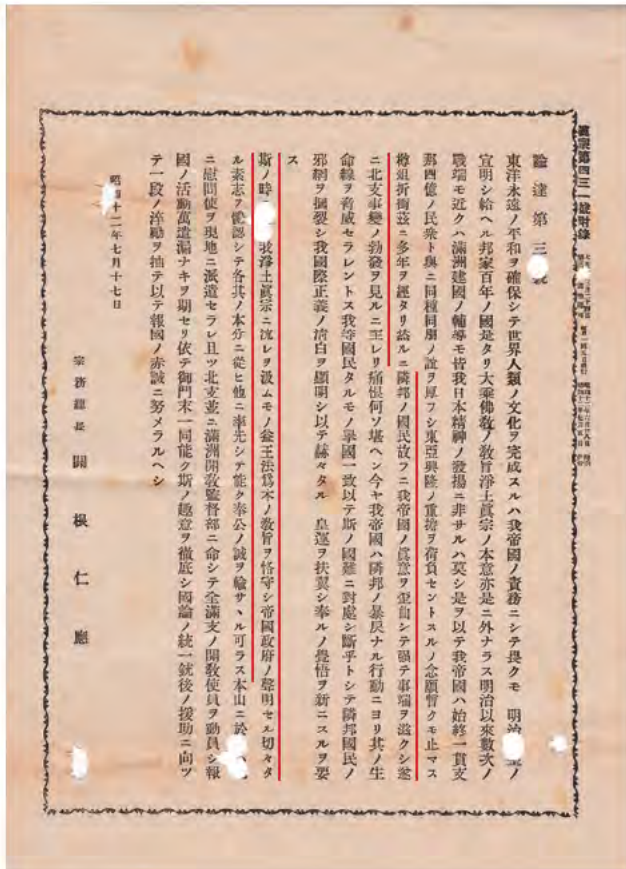 眞宗第四三一號附錄
諭達第三
東洋永遠ノ平和ヲ確保シテ世界人類ノ文化ヲ完成スルハ我帝國ノ責務ニシテ畏クモ 明治
宣明シ給ヘル邦家百年ノ國是タリ大乘佛敎ノ敎旨淨土眞宗ノ本意亦是ニ外ナラス明治以來數次ノ
戰端モ近クハ滿洲建國ノ輔導モ皆我日本精神ノ發揚ニ非サルハ莫シ是ヲ以テ我帝國ハ始終一貫支
那四億ノ民衆ト與ニ同種同朋ノ誼ヲ厚フシ東亞興隆ノ重擔ヲ荷負セントスルノ念願暫クモ止マス
樽俎折衝茲ニ多年ヲ經タリ然ルニ隣邦ノ國民故フニ我帝國ノ眞意ヲ歪曲シテ强テ事端ヲ滋クシ遂
ニ北支事變ノ勃發ヲ見ルニ至レリ痛恨何ソ堪ヘン今ヤ我帝國ハ隣邦ノ暴戾ナル行動ニヨリ其ノ生
命線ヲ脅威セラレントス我等國民タルモノ擧國一致以テ斯ノ國難ニ對處シ斷乎トシテ隣邦國民ノ
邪網ヲ摑裂シ我國際正義ノ淸白ヲ顯開シ以テ赫々タル 皇運ヲ扶翼シ奉ルノ覺悟ヲ新ニスルヲ要
ス
斯ノ時 我淨土眞宗ニ流レヲ汲ムモノ益王法爲本ノ敎旨ヲ恪守シ帝國政府ノ聲明セル切々タ
ル素志ヲ體認シテ各其ノ本分ニ從ヒ他ニ率先シテ能ク奉公ノ誠ヲ輸サヽル可ラス本山ニ於
ニ慰問使ヲ現地ニ派遣セラレ且ツ北支並ニ滿洲開敎監督部ニ命シテ全滿支ノ開敎使員ヲ動員シ報
國ノ活動萬遺漏ナキヲ期セリ依テ御門末一同能ク斯ノ趣意ヲ徹底シ國論ノ統一銃後ノ援助ニ向ツ
テ一段ノ淬勵ヲ抽テ以テ報國ノ赤誠ニ努メラルヘシ
昭和十二年七月十七日
宗務總長 關根仁應